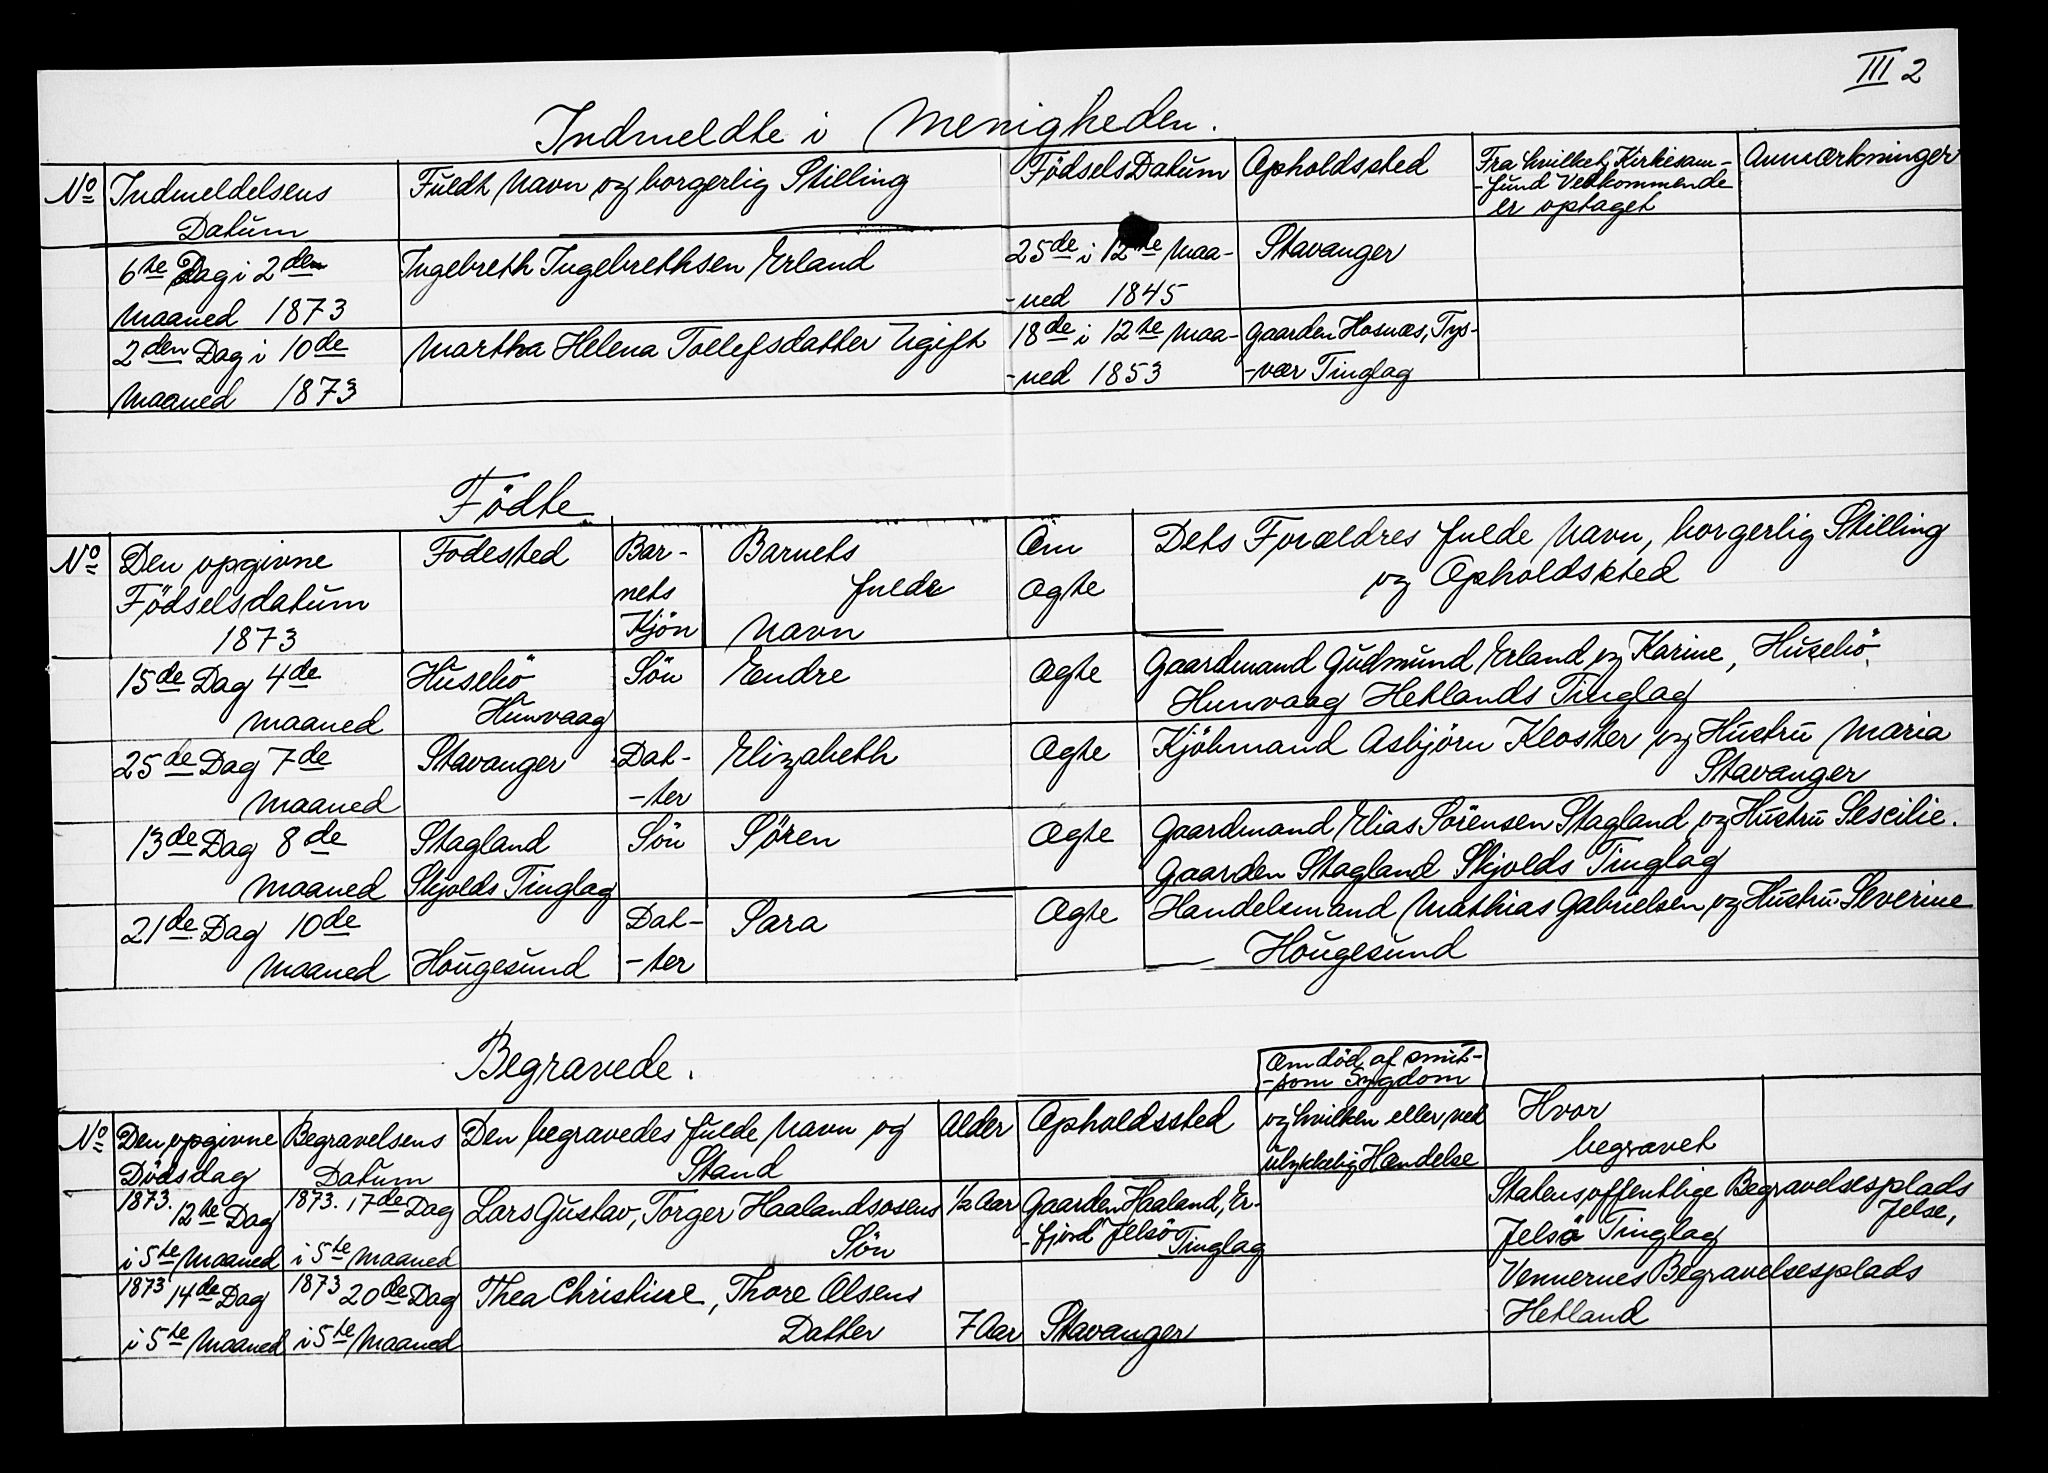 III 2
Indmeldte i Menigheden.
No Indmeldelsens Datum Fuldt Navn og borgerlig Stilling FödselsDatum Opholdssted Fra hvilket Kirkesam-
-fund Vedkommende
er optaget Anmærkninger
6te Dag i 2den Ingebreth Ingebrethsen Erland 25de i 12te Maa- Stavanger
Maaned 1873 -ned 1845
2den Dag i 10de Martha Helena Tollefsdatter Ugift 18de i 12te Maa- Gaarden Hosnæs, Tys-
Maaned 1873 -ned 1853 -vær Tinglag
Födte
No Den opgivne Fodested Bar- Barnets Om Dets Forældres fulde Navn, borgerlig Stilling
Födselsdatum nets fulde Ægte og Opholdssted
1873 Kjön Navn
15de Dag 4de Huselsö Sön Endre Ægte Gaardmand Gudmund Erland og Karine, Huselsö
Maaned Hunvaag Hunvaag Hetlands Tinglag
25de Dag 7de Stavanger Dat- Elizabeth Ægte Kjöbmand Asbjörn Kloster og Hustru Maria
Maaned -ter Stavanger
13de Dag 8de Stagland Sön Sören Ægte Gaardmand Elias Sörensen Stagland og Hustru Sescilie.
Maaned Skjolds Tinglag Gaarden Stagland Skjolds Tinglag
21de Dag 10de Dat- Sara Ægte Handelsmand Mathias Gabrielsen og Hustru Severine
Maaned Hougesund -ter Hougesund
Begravede.
Om död af smit-
-som Sygdom
No Den opgivne Begravelsens Den begravedes fulde Navn og Alder Opholdssted og hvilken eller ved Hvor
Dödsdag Datum Stand ulykkelig Hændelse begravet
1873. 12te Dag 1873. 17de Dag Lars Gustav, Torger Haalandsosens 1/2 Aar Gaarden Haaland, Er- Statensoffentlige Begravelsesplads
Jelse,
i 5te Maaned i 5te Maaned Sön -fjord Jelsö Tinglag Jelsö Tinglag
1873 14de Dag 1873 20de Dag Thea Christine, Thore Olsens Vennernes Begravelsesplads
i 5te Maaned i 5te Maaned Datter 7 Aar Stavanger Hetland